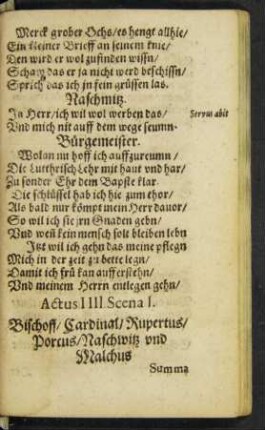 Merck grober Ochs/es hengt allhie/
Ein kleiner Brieff an seinem knie/
Den wird er wol zufinden wissn/
Schaw das er ja nicht werd beschissn/
Sprich das ich jn fein grüssen las.
Naschmitz.
Ja Herr/ich wil wol werben das/ Servus abit
Vnd mich nit auff dem wege seumn.
Bürgemeister.
Wolan nu hoff ich auffzureumn/
Die Lutthrisch Lehr mit haut vnd har/
Zu sonder Ehr dem Bapste klar.
Die schlüssel hab ich hie zum thor/
Als bald nur kömpt mein Herr dauor/
So wil ich sie jrn Gnaden gebn/
Vnd weñ kein mensch solt bleiben lebn
Jtzt wil ich gehn das meine pflegn
Mich in der zeit zu bette legn/
Damit ich frü kan aufferstehn/
Vnd meinem Herrn entlegen gehn/
Actus IIII Scena I.
Bischoff/Cardinal/Rupertus/
Porcus/Naschwitz vnd
Malchus
Summa